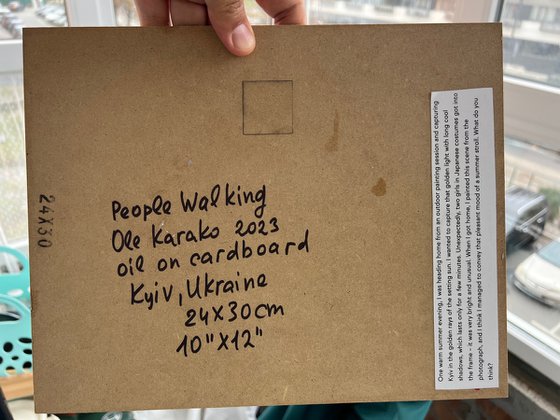 24X30
People Walking
Ole Karako 2023
oil on cardboard
Kyiv, Ukraine
24X30cm
10"X12"
One warm summer evening, I was heading home from an outdoor painting session and capturing
Kyiv in the golden rays of the setting sun. I wanted to capture that golden light with long cool
shadows, which lasts only for a few minutes. Unexpectedly, two girls in Japanese costumes got into
the frame - it was very bright and unusual. When I got home, I painted this scene from the
photograph, and I think I managed to convey that pleasant mood of a summer stroll. What do you
think?